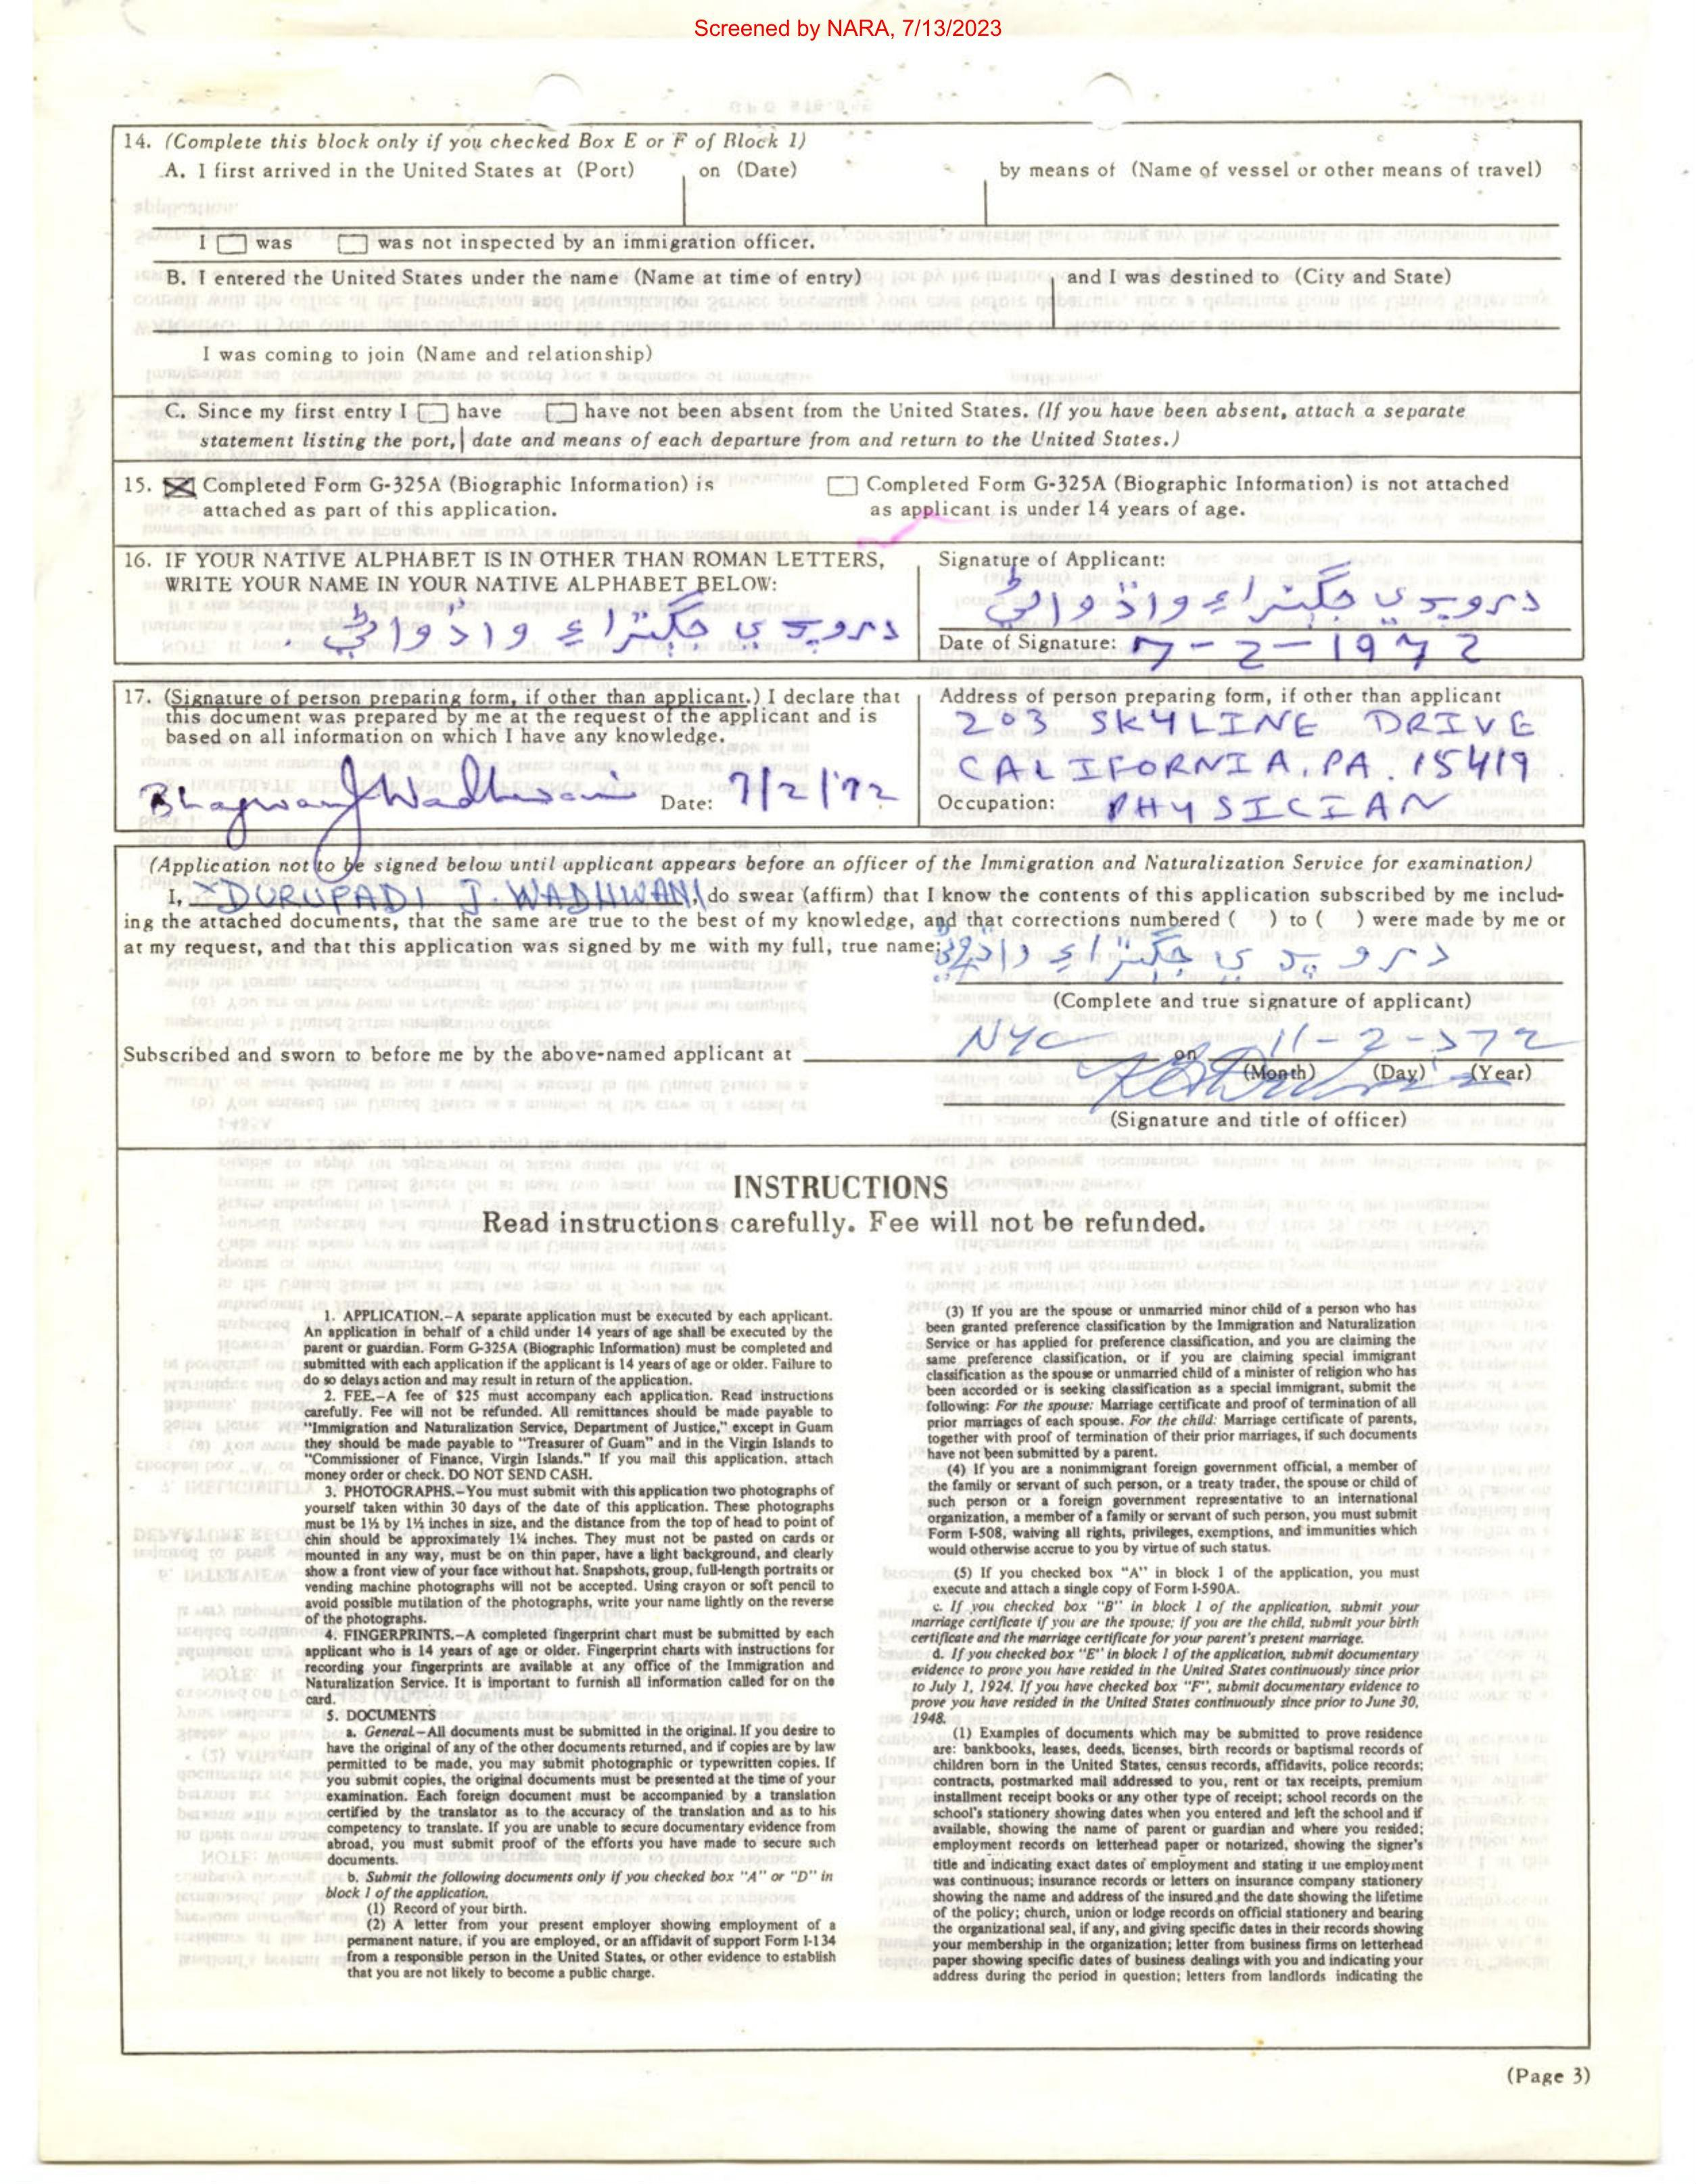 Screened by NARA, 7/13/2023
14. (Complete this block only if you checked Box E or F of Block 1)
A. I first arrived in the United States at (Port) on (Date) by means of (Name of vessel or other means of travel)
I was was not inspected by an immigration officer.
B. I entered the United States under the name (Name at time of entry) and I was destined to (City and State)
I was coming to join (Name and relationship)
C. Since my first entry I have have not been absent from the United States. (If you have been absent, attach a separate
statement listing the port, date and means of each departure from and return to the United States.)
15. Completed Form G-325A (Biographic Information) is
attached as part of this application.
Completed Form G-325A (Biographic Information) is not attached
as applicant is under 14 years of age.
16. IF YOUR NATIVE ALPHABET IS IN OTHER THAN ROMAN LETTERS,
WRITE YOUR NAME IN YOUR NATIVE ALPHABET BELOW:
Signature of Applicant:
Date of Signature: 7-2-1972
17. (Signature of person preparing form, if other than applicant.) I declare that
this document was prepared by me at the request of the applicant and is
based on all information on which I have any knowledge.
Bhagwan J Wadhwani Date: 7/2/72
Address of person preparing form, if other than applicant
203 SKYLINE DRIVE
CALIFORNIA, PA. 15419
Occupation: PHYSICIAN
(Application not to be signed below until applicant appears before an officer of the Immigration and Naturalization Service for examination)
I, X DURUPADI J. WADHWANI, do swear (affirm) that I know the contents of this application subscribed by me includ-
ing the attached documents, that the same are true to the best of my knowledge, and that corrections numbered ( ) to ( ) were made by me or
at my request, and that this application was signed by me with my full, true name:
(Complete and true signature of applicant)
Subscribed and sworn to before me by the above-named applicant at NYC on 11-2-72
(Month) (Day) (Year)
(Signature and title of officer)
INSTRUCTIONS
Read instructions carefully. Fee will not be refunded.
1. APPLICATION.—A separate application must be executed by each applicant.
An application in behalf of a child under 14 years of age shall be executed by the
parent or guardian. Form G-325A (Biographic Information) must be completed and
submitted with each application if the applicant is 14 years of age or older. Failure to
do so delays action and may result in return of the application.
2. FEE.—A fee of $25 must accompany each application. Read instructions
carefully. Fee will not be refunded. All remittances should be made payable to
"Immigration and Naturalization Service, Department of Justice," except in Guam
they should be made payable to "Treasurer of Guam" and in the Virgin Islands to
"Commissioner of Finance, Virgin Islands." If you mail this application, attach
money order or check. DO NOT SEND CASH.
3. PHOTOGRAPHS.—You must submit with this application two photographs of
yourself taken within 30 days of the date of this application. These photographs
must be 1½ by 1½ inches in size, and the distance from the top of head to point of
chin should be approximately 1¼ inches. They must not be pasted on cards or
mounted in any way, must be on thin paper, have a light background, and clearly
show a front view of your face without hat. Snapshots, group, full-length portraits or
vending machine photographs will not be accepted. Using crayon or soft pencil to
avoid possible mutilation of the photographs, write your name lightly on the reverse
of the photographs.
4. FINGERPRINTS.—A completed fingerprint chart must be submitted by each
applicant who is 14 years of age or older. Fingerprint charts with instructions for
recording your fingerprints are available at any office of the Immigration and
Naturalization Service. It is important to furnish all information called for on the
card.
5. DOCUMENTS
a. General—All documents must be submitted in the original. If you desire to
have the original of any of the other documents returned, and if copies are by law
permitted to be made, you may submit photographic or typewritten copies. If
you submit copies, the original documents must be presented at the time of your
examination. Each foreign document must be accompanied by a translation
certified by the translator as to the accuracy of the translation and as to his
competency to translate. If you are unable to secure documentary evidence from
abroad, you must submit proof of the efforts you have made to secure such
documents.
b. Submit the following documents only if you checked box "A" or "D" in
block 1 of the application.
(1) Record of your birth.
(2) A letter from your present employer showing employment of a
permanent nature, if you are employed, or an affidavit of support Form I-134
from a responsible person in the United States, or other evidence to establish
that you are not likely to become a public charge.
(3) If you are the spouse or unmarried minor child of a person who has
been granted preference classification by the Immigration and Naturalization
Service or has applied for preference classification, and you are claiming the
same preference classification, or if you are claiming special immigrant
classification as the spouse or unmarried child of a minister of religion who has
been accorded or is seeking classification as a special immigrant, submit the
following: For the spouse: Marriage certificate and proof of termination of all
prior marriages of each spouse. For the child: Marriage certificate of parents,
together with proof of termination of their prior marriages, if such documents
have not been submitted by a parent.
(4) If you are a nonimmigrant foreign government official, a member of
the family or servant of such person, or a treaty trader, the spouse or child of
such person or a foreign government representative to an international
organization, a member of a family or servant of such person, you must submit
Form I-508, waiving all rights, privileges, exemptions, and immunities which
would otherwise accrue to you by virtue of such status.
(5) If you checked box "A" in block 1 of the application, you must
execute and attach a single copy of Form I-590A.
c. If you checked box "B" in block 1 of the application, submit your
marriage certificate if you are the spouse; if you are the child, submit your birth
certificate and the marriage certificate for your parent's present marriage.
d. If you checked box "E" in block 1 of the application, submit documentary
evidence to prove you have resided in the United States continuously since prior
to July 1, 1924. If you have checked box "F", submit documentary evidence to
prove you have resided in the United States continuously since prior to June 30,
1948.
(1) Examples of documents which may be submitted to prove residence
are: bankbooks, leases, deeds, licenses, birth records or baptismal records of
children born in the United States, census records, affidavits, police records;
contracts, postmarked mail addressed to you, rent or tax receipts, premium
installment receipt books or any other type of receipt; school records on the
school's stationery showing dates when you entered and left the school and if
available, showing the name of parent or guardian and where you resided;
employment records on letterhead paper or notarized, showing the signer's
title and indicating exact dates of employment and stating if the employment
was continuous; insurance records or letters on insurance company stationery
showing the name and address of the insured and the date showing the lifetime
of the policy; church, union or lodge records on official stationery and bearing
the organizational seal, if any, and giving specific dates in their records showing
your membership in the organization; letter from business firms on letterhead
paper showing specific dates of business dealings with you and indicating your
address during the period in question; letters from landlords indicating the
(Page 3)